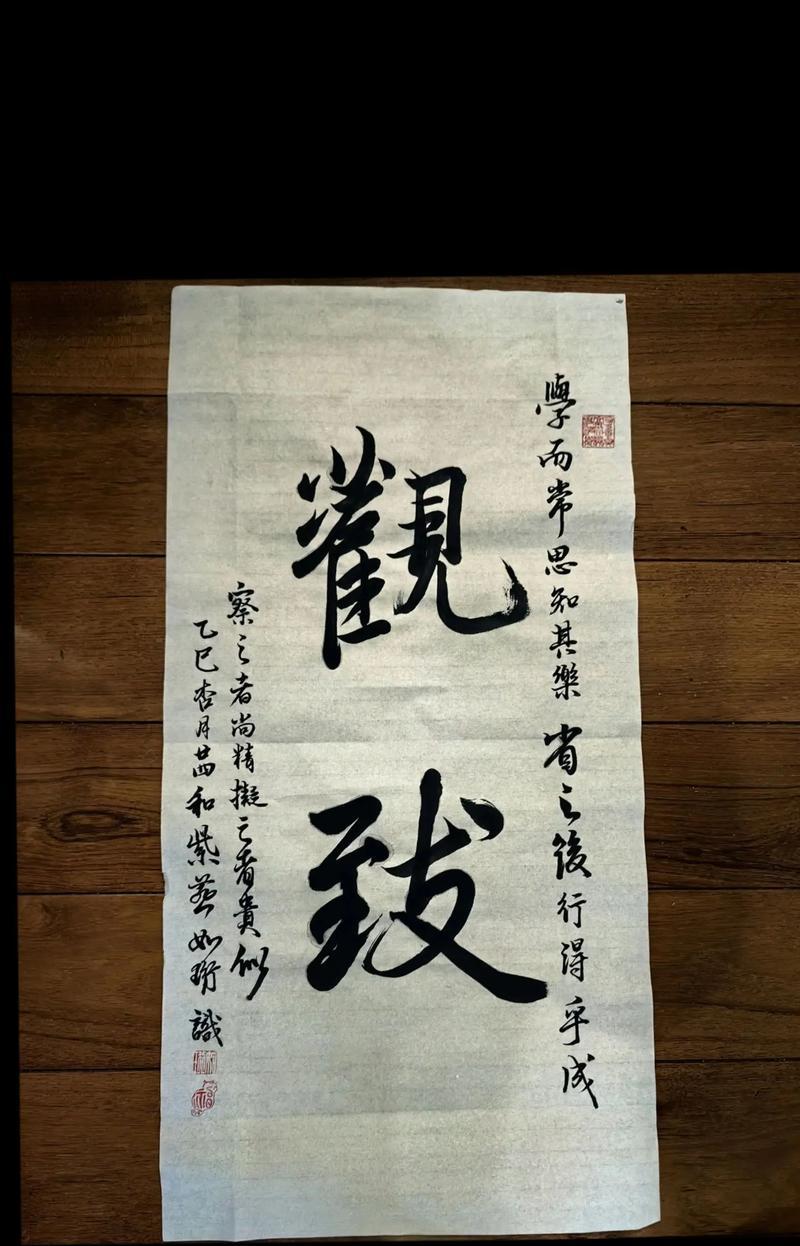 學而常思知其樂 省之後行得乎成
觀致
察之者尚精擬之者貴似
乙巳杏月廿四和紫燕如珩識